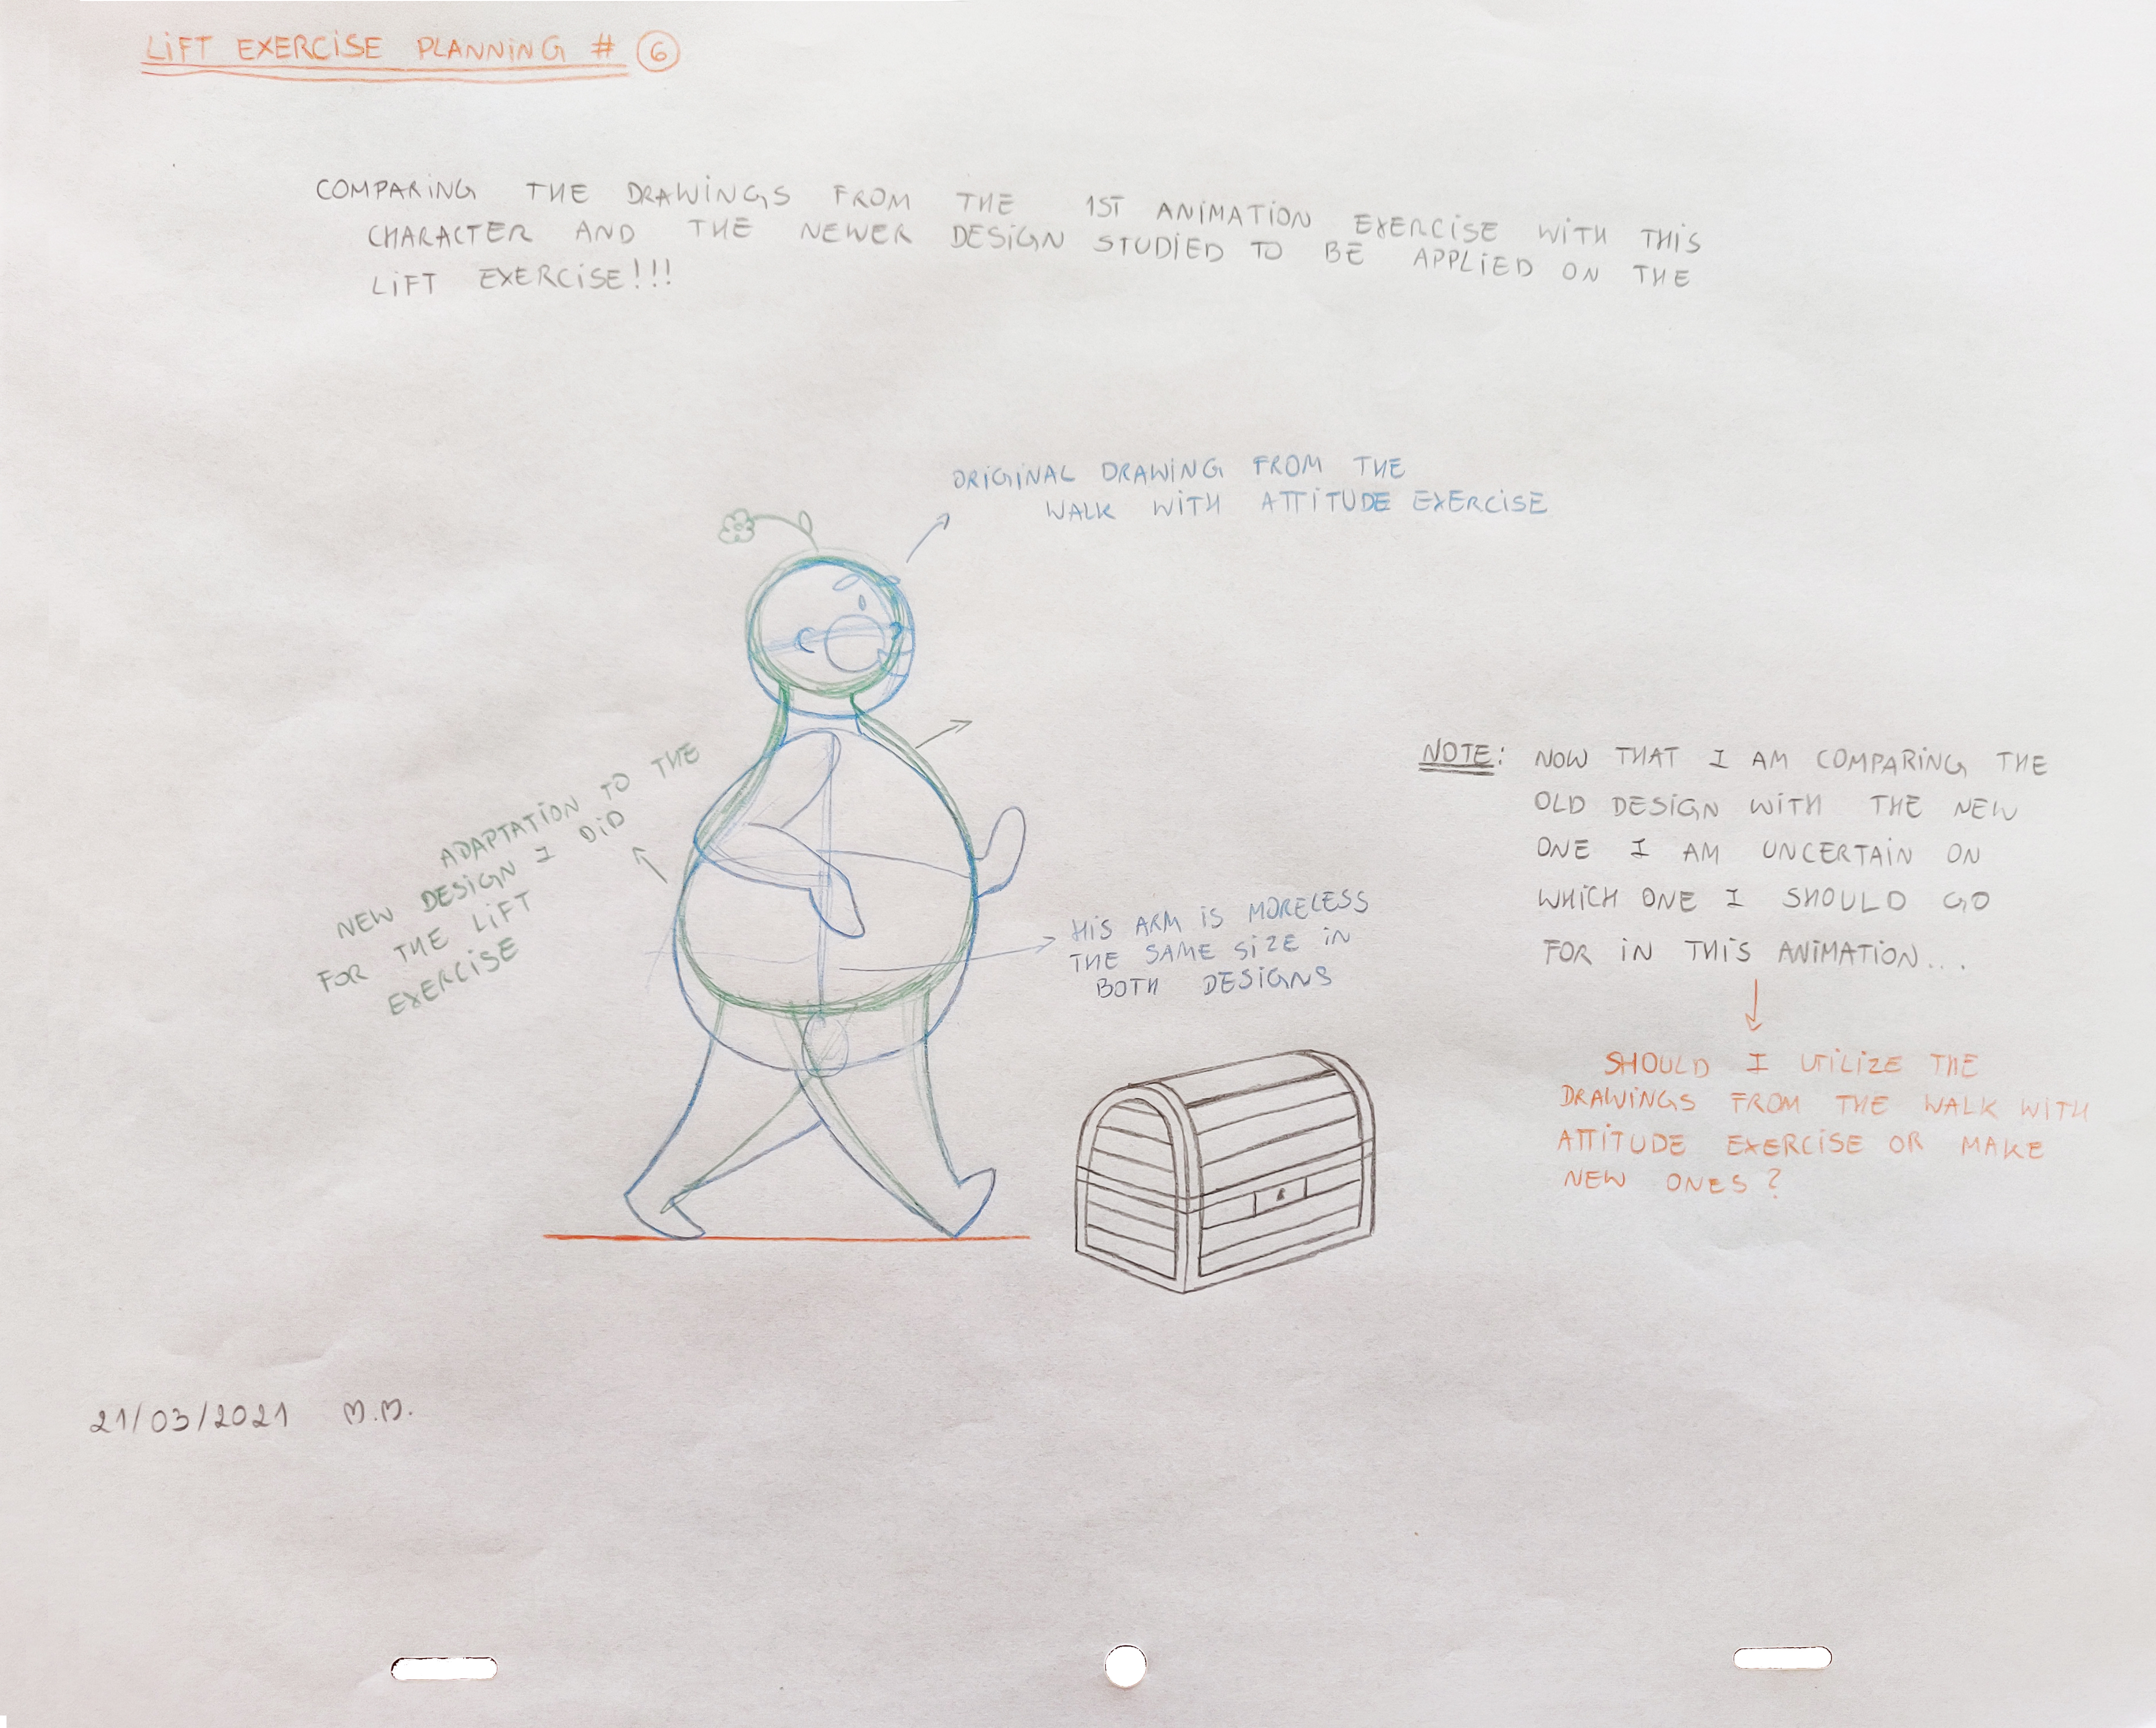 LIFT EXERCISE PLANNING # 6
COMPARING THE DRAWINGS FROM THE 1ST ANIMATION EXERCISE WITH THIS
CHARACTER AND THE NEWER DESIGN STUDIED TO BE APPLIED ON THE
LIFT EXERCISE!!!
ORIGINAL DRAWING FROM THE
WALK WITH ATTITUDE EXERCISE
ADAPTATION TO THE
NEW DESIGN I DID
FOR THE LIFT
EXERCISE
HIS ARM IS MORELESS
THE SAME SIZE IN
BOTH DESIGNS
NOTE: NOW THAT I AM COMPARING THE
OLD DESIGN WITH THE NEW
ONE I AM UNCERTAIN ON
WHICH ONE I SHOULD GO
FOR IN THIS ANIMATION...
SHOULD I UTILIZE THE
DRAWINGS FROM THE WALK WITH
ATTITUDE EXERCISE OR MAKE
NEW ONES?
21/03/2021 M.M.